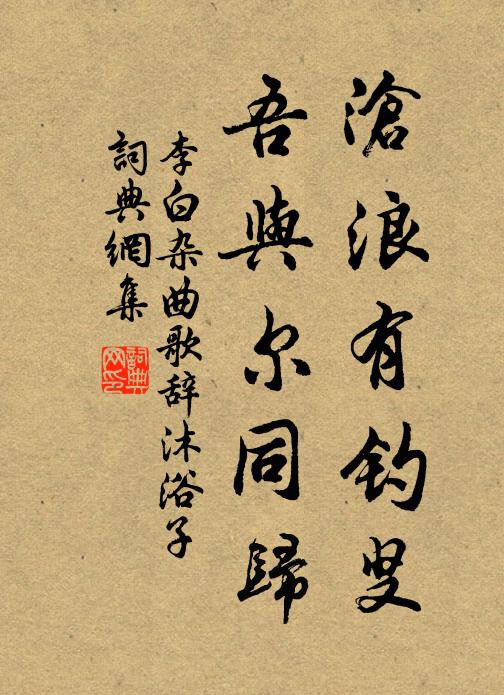 滄浪有钓叟
吾與尔同歸
李白杂曲歌辞沐浴子
詞典網集
詞典网印